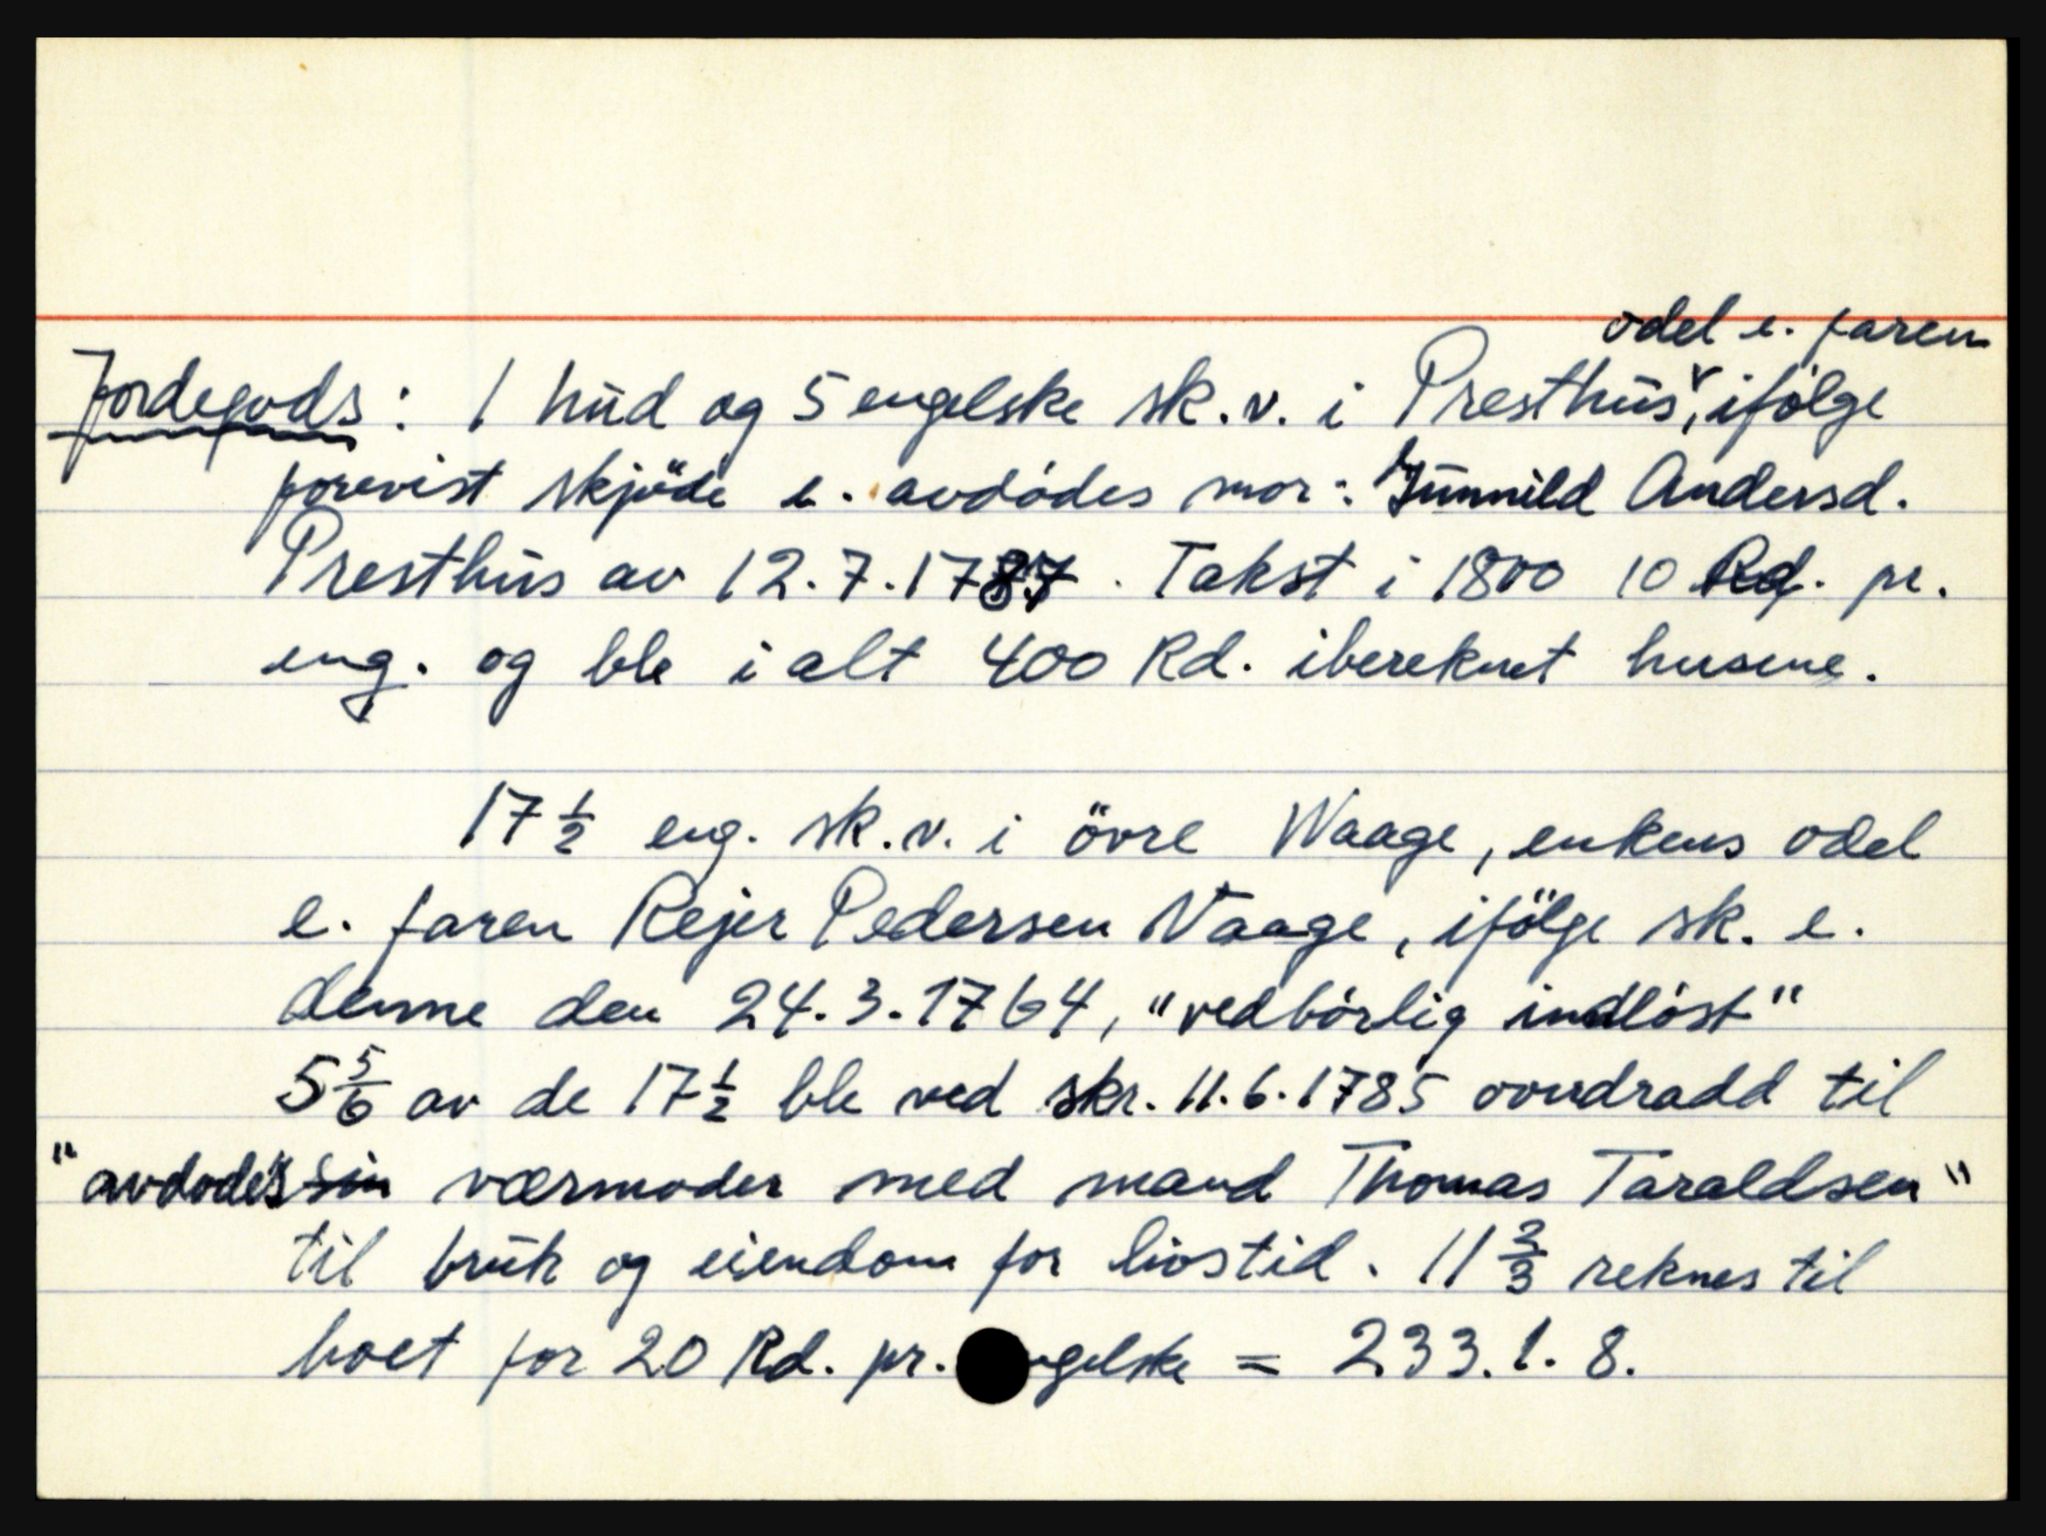 odel e. faren
Jordegods: 1 hud og 5 engelske sk.v. i Presthus, ifølge
forevist skjöde e. avdödes mor: Gunnild Andersd.
Presthus av 12.7.1787. Takst i 1800 10 Rd. pr.
eng. og ble i alt 400 Rd. ibereknet husene.
17 1/2 eng. sk.v. i övre Waage, enkens odel
e. faren Rejer Pedersen Vaage, ifölge sk. e.
denne den 24.3.1764, "vedbörlig indlöst"
5 5/6 av de 17 1/2 ble ved skr. 11.6.1785 overdradd til
"avdödes sin værmoder med mand Thomas Taraldsen"
til bruk og eiendom for livstid. 11 2/3 reknes til
boet for 20 Rd. pr. gelske = 233.1.8.